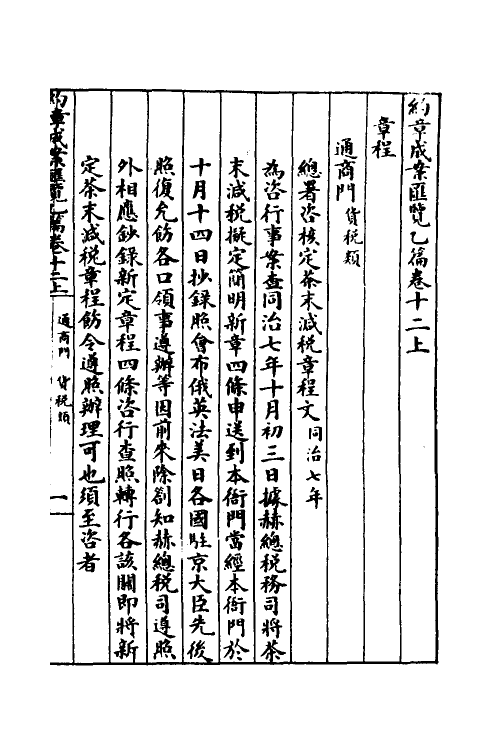 約章成案匯覽乙篇卷十二上
章程
通商門 貨稅類
總署咨核定茶末減稅章程文 同治七年
為咨行事案查同治七年十月初三日據赫總稅務司將茶
末減稅擬定簡明新章四條申送到本衙門當經本衙門於
十月十四日抄錄照會布俄英法美日各國駐京大臣先後
照復允飭各口領事遵辦等因前來除劄知赫總稅司遵照
外相應鈔錄新定章程四條咨行查照轉行各該關即將新
定茶末減稅章程飭令遵照辦理可也須至咨者
約章成案匯覽乙篇卷十二上 通商門 貨稅類 一